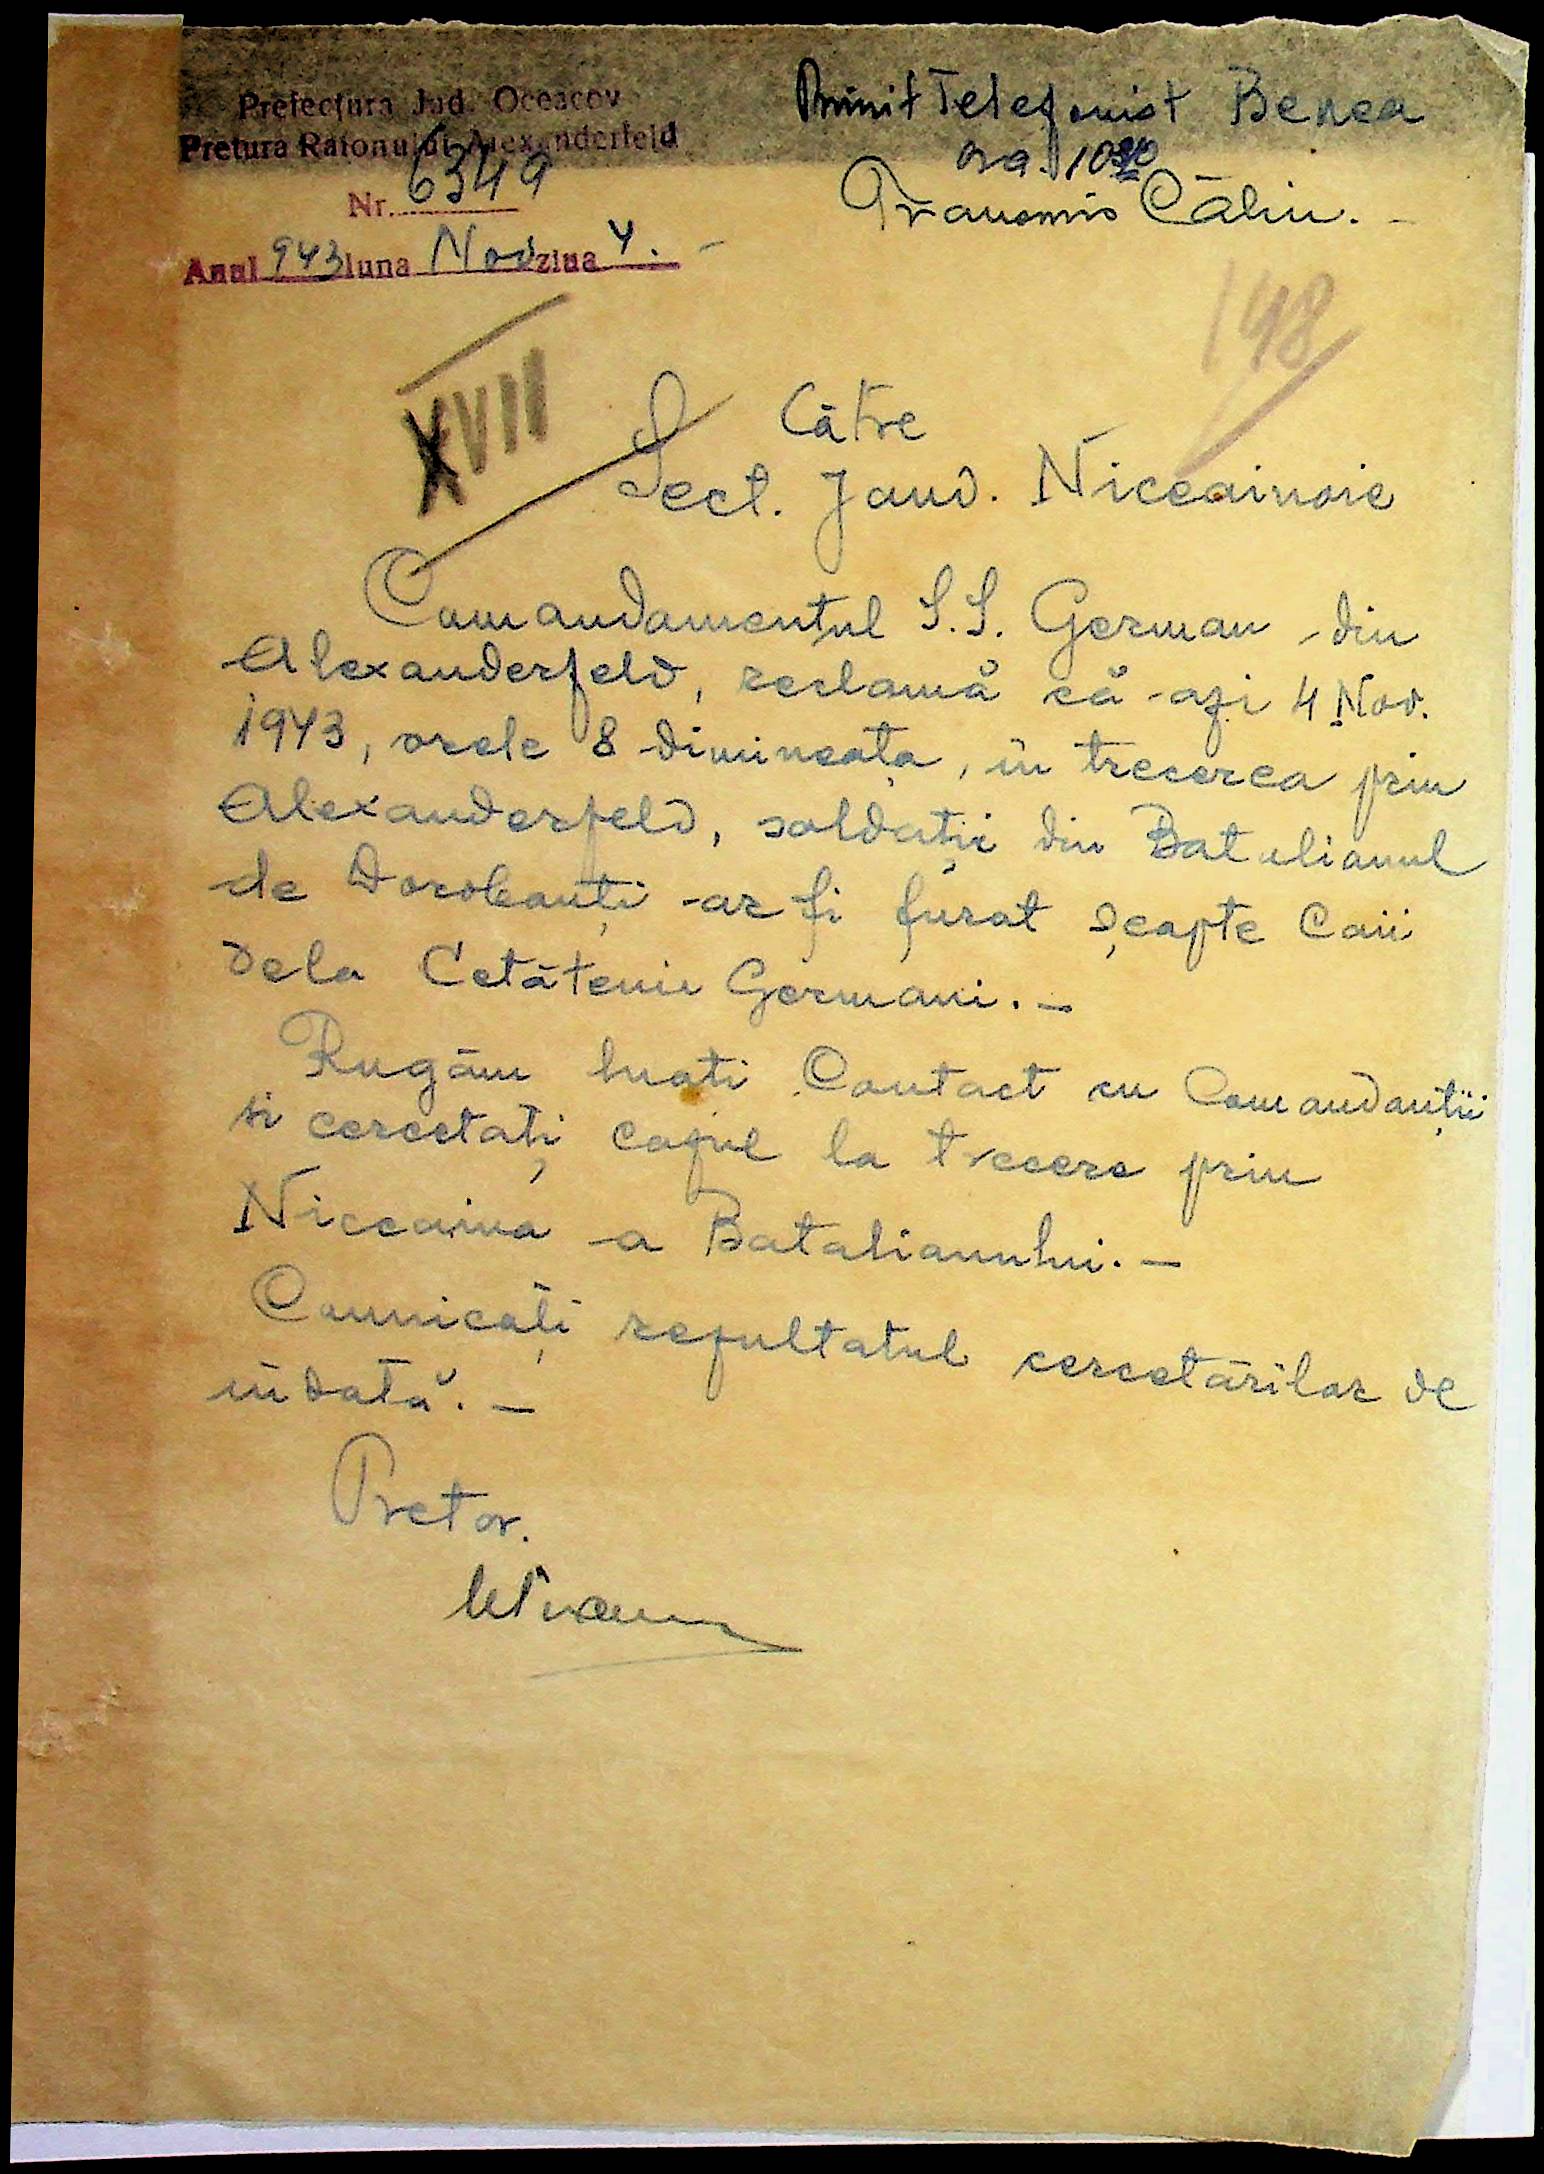 Prefectura Jud. Oceacov
Pretura Raionului Alexanderfeld
Nr. 6349
Anul 943 luna Nov ziua 4. -
Primit Telefonist Benea
ora 10
Transmis Călin. -
148
XVII
Către
Sect. Jand. Niceainoie
Comandamentul S.S. German din
Alexanderfeld, reclamă că azi 4 Nov.
1943, orele 8 dimineața, în trecerea prin
Alexanderfeld, soldații din Batalionul
de Dorobanți ar fi furat șeapte Caii
dela Cetăteni Germani. -
Rugăm luati Contact cu Comandanții
si cercetați cazul la trecere prin
Niceaina a Batalionului. -
Comnicați rezultatul cercetărilor de
îndată. -
Pretor.